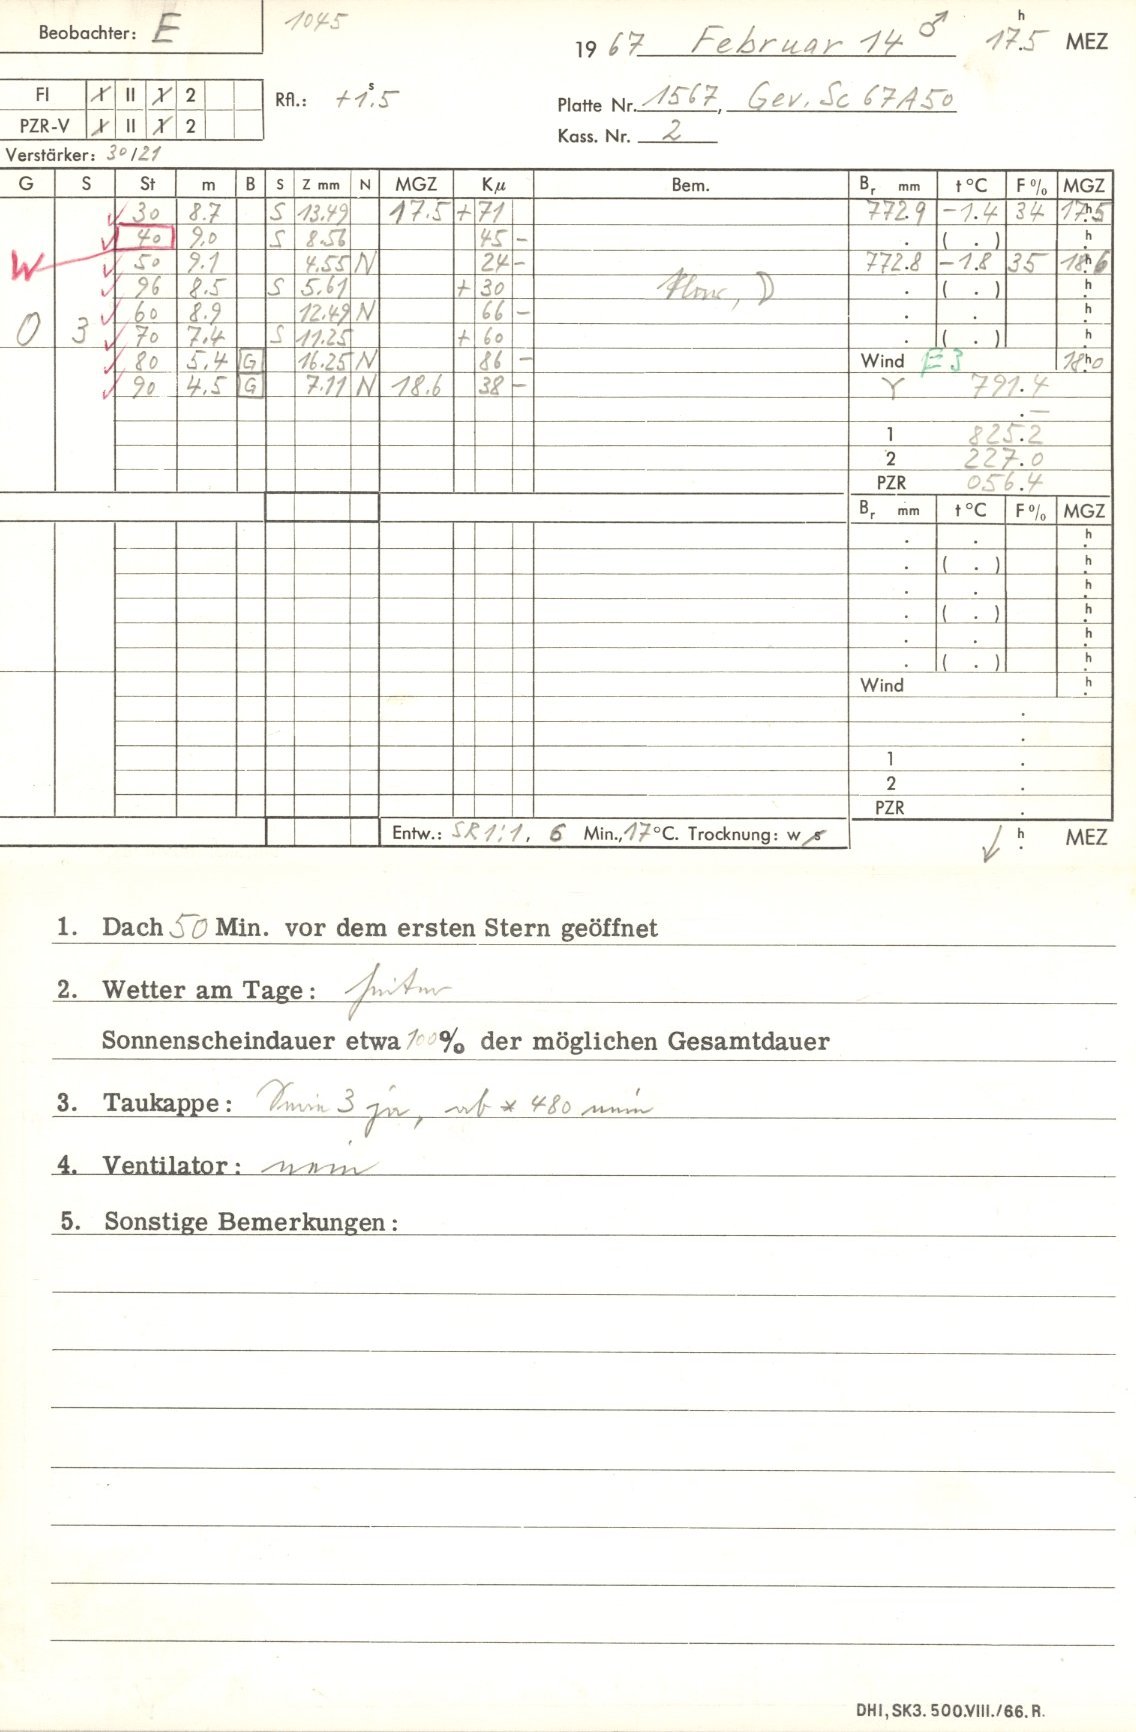 Beobachter: E
1045
19 67 Februar 14 ♂ 17.5 h MEZ
FI X II X 2
PZR-V X II X 2
Rfl.: +1.5 s
Platte Nr. 1567, Gev. Sc 67A50
Kass. Nr. 2
Verstärker: 30/21
G S St m B S Z mm N MGZ Kμ Bem. Br mm t °C F % MGZ
30 8.7 S 13.49 17.5 + 71 772.9 -1.4 34 17.5 h
40 9.0 S 8.56 45 - . ( . ) h
W 50 9.1 4.55 N 24 - 772.8 -1.8 35 18.6 h
96 8.5 S 5.61 + 30 . ( . ) h
60 8.9 12.49 N 66 - . . h
0 3 70 7.4 S 11.25 + 60 . ( . ) h
80 5.4 G 16.25 N 86 - Wind E 3 18.0 h
90 4.5 G 7.11 N 18.6 38 - γ 791.4
. —
1 825.2
2 227.0
PZR 056.4
Br mm t °C F % MGZ
. . h
. ( . ) h
. . h
. ( . ) h
. . h
. ( . ) h
Wind h
.
.
1 .
2 .
PZR .
Entw.: SR 1:1, 6 Min., 17 °C. Trocknung: w s
↓ h MEZ
1. Dach 50 Min. vor dem ersten Stern geöffnet
2. Wetter am Tage: heiter
Sonnenscheindauer etwa 100% der möglichen Gesamtdauer
3. Taukappe: 3 ja, ab * 480 nein
4. Ventilator: nein
5. Sonstige Bemerkungen:
DHI, SK3. 500.VIII./66. R.